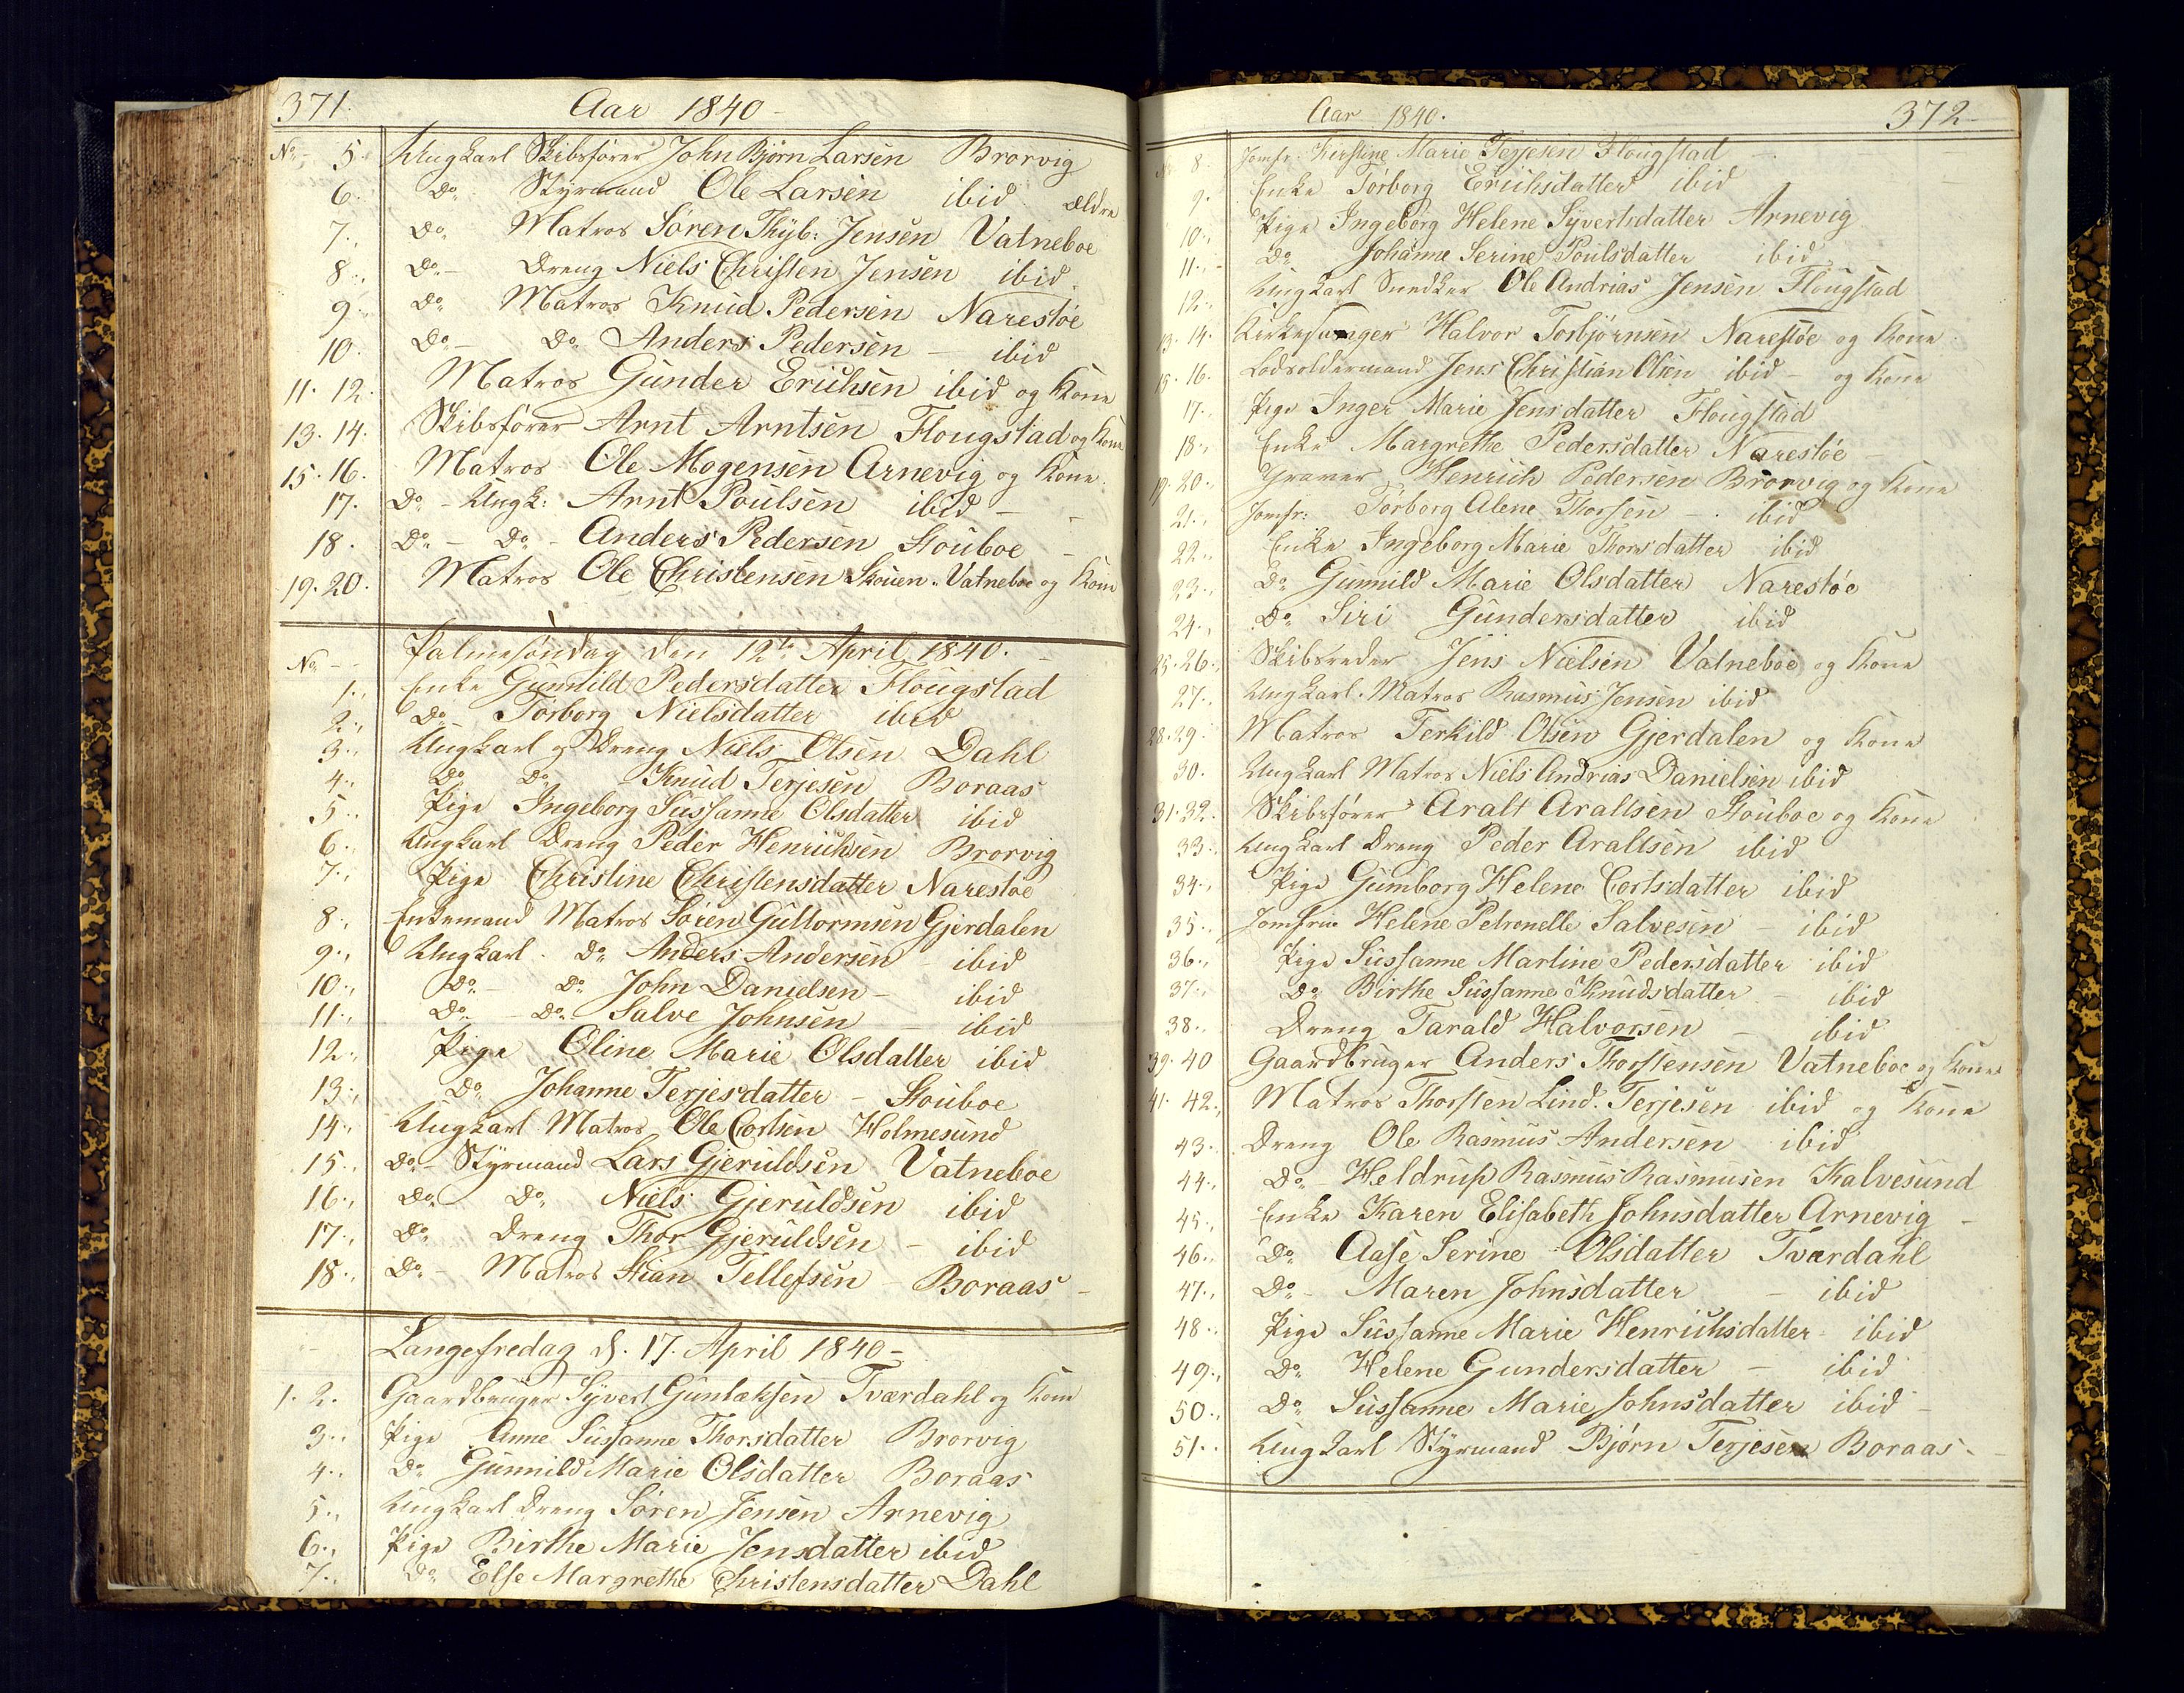 371. Aar 1840
No 5. Ungkarl Skibsfører John Bjørn Larsen Brorvig
6. Do Styrmand Ole Larsen ibid ældre
7. Do Matros Søren Thyb: Jensen Vatneboe
8. Do Dreng Niels Christen Jensen ibid
9. Do Matros Knud Pedersen Narestøe
10. Do Do Anders Pedersen ibid
11. 12. Matros Gunder Erichsen ibid og Kone
13. 14. Skibsfører Arnt Arntsen Flougstad og Kone
15. 16. Matros Ole Mogensen Arnevig og Kone
17. Do Ungk: Arnt Poulsen ibid
18. Do Do Anders Pedersen Stouboe
19. 20. Matros Ole Christensen Skouen Vatneboe og Kone
Palmesøndag den 12te April 1840.
No 1. Enke Gunnild Pedersdatter Flougstad
2. Do Torborg Nielsdatter ibid
3. Ungkarl og Dreng Niels Olsen Dahl
4. Do Do Knud Terjesen Boraas
5. Pige Ingeborg Sussanne Olsdatter ibid
6. Ungkarl Dreng Peder Henrichsen Brorvig
7. Pige Christine Christensdatter Narestøe
8. Enkemand Matros Søren Guttormsen Gjerdalen
9. Ungkarl Do Anders Andersen ibid
10. Do Do John Danielsen ibid
11. Do Do Salve Johnsen ibid
12. Pige Oline Marie Olsdatter ibid
13. Do Johanne Terjesdatter Stouboe
14. Ungkarl Matros Ole Cortsen Holmesund
15. Do Styrmand Lars Gjeruldsen Vatneboe
16. Do Do Niels Gjeruldsen ibid
17. Do Dreng Thor Gjeruldsen ibid
18. Do Matros Stian Tellefsen Boraas
Langefredag d. 17. April 1840
1. 2. Gaardbruger Syvert Gunlæksen Tværdahl og Kone
3. Pige Anne Sussanne Thorsdatter Brorvig
4. Do Gunnild Marie Olsdatter Boraas
5. Ungkarl Dreng Søren Jensen Arnevig
6. Pige Birthe Marie Jensdatter ibid
7. Do Else Margrethe Christensdatter Dahl
Aar 1840. 372
No 8. Jomfr: Kirstine Marie Terjesen Flougstad
9. Enke Torborg Erichsdatter ibid
10. Pige Ingeborg Helene Syvertsdatter Arnevig
11. Do Johanne Serine Poulsdatter ibid
12. Ungkarl Snedker Ole Andrias Jensen Flougstad
13. 14. Kirkesanger Halvor Torbjørnsen Narestøe og Kone
15. 16. Lodsoldermand Jens Christian Olsen ibid og Kone
17. Pige Inger Marie Jensdatter Flougstad
18. Enke Margrethe Pedersdatter Narestøe
19. 20. Graver Henrich Pedersen Brorvig og Kone
21. Jomfr: Torborg Alene Thorsen ibid
22. Enke Ingeborg Marie Thorsdatter ibid
23. Do Gunnild Marie Olsdatter Narestøe
24. Do Siri Gundersdatter ibid
25. 26. Skibsreder Jens Nielsen Vatneboe og Kone
27. Ungkarl Matros Rasmus Jensen ibid
28. 29. Matros Terkild Olsen Gjerdalen og Kone
30. Ungkarl Matros Niels Andrias Danielsen ibid
31. 32. Skibsfører Aralt Araltsen Stouboe og Kone
33. Ungkarl Dreng Peder Araltsen ibid
34. Pige Gumborg Helene Cortsdatter ibid
35. Jomfrue Helene Petronelle Salvesen ibid
36. Pige Sussanne Martine Pedersdatter ibid
37. Do Birthe Sussanne Knudsdatter ibid
38. Dreng Tarald Halvorsen ibid
39. 40 Gaardbruger Anders Thorstensen Vatneboe og Kone
41. 42. Matros Thorsten Lind. Terjesen ibid og Kone
43. Dreng Ole Rasmus Andersen ibid
44. Do Heldrup Rasmus Rasmusen Kalvesund
45. Enke Karen Elisabeth Johnsdatter Arnevig
46. Do Aase Serine Olsdatter Tværdahl
47. Do Maren Johnsdatter ibid
48. Pige Sussanne Marie Henrichsdatter ibid
49. Do Helene Gundersdatter ibid
50. Do Sussanne Marie Johnsdatter ibid
51. Ungkarl Styrmand Bjørn Terjesen Boraas